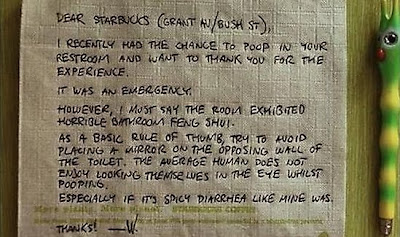 DEAR STARBUCKS (GRANT AV/BUSH ST),
I RECENTLY HAD THE CHANCE TO POOP IN YOUR
RESTROOM AND WANT TO THANK YOU FOR THE
EXPERIENCE.
IT WAS AN EMERGENCY.
HOWEVER, I MUST SAY THE ROOM EXHIBITED
HORRIBLE BATHROOM FENG SHUI.
AS A BASIC RULE OF THUMB, TRY TO AVOID
PLACING A MIRROR ON THE OPPOSING WALL OF
THE TOILET. THE AVERAGE HUMAN DOES NOT
ENJOY LOOKING THEMSELVES IN THE EYE WHILST
POOPING.
ESPECIALLY IF IT'S SPICY DIARRHEA LIKE MINE WAS.
THANKS! —W